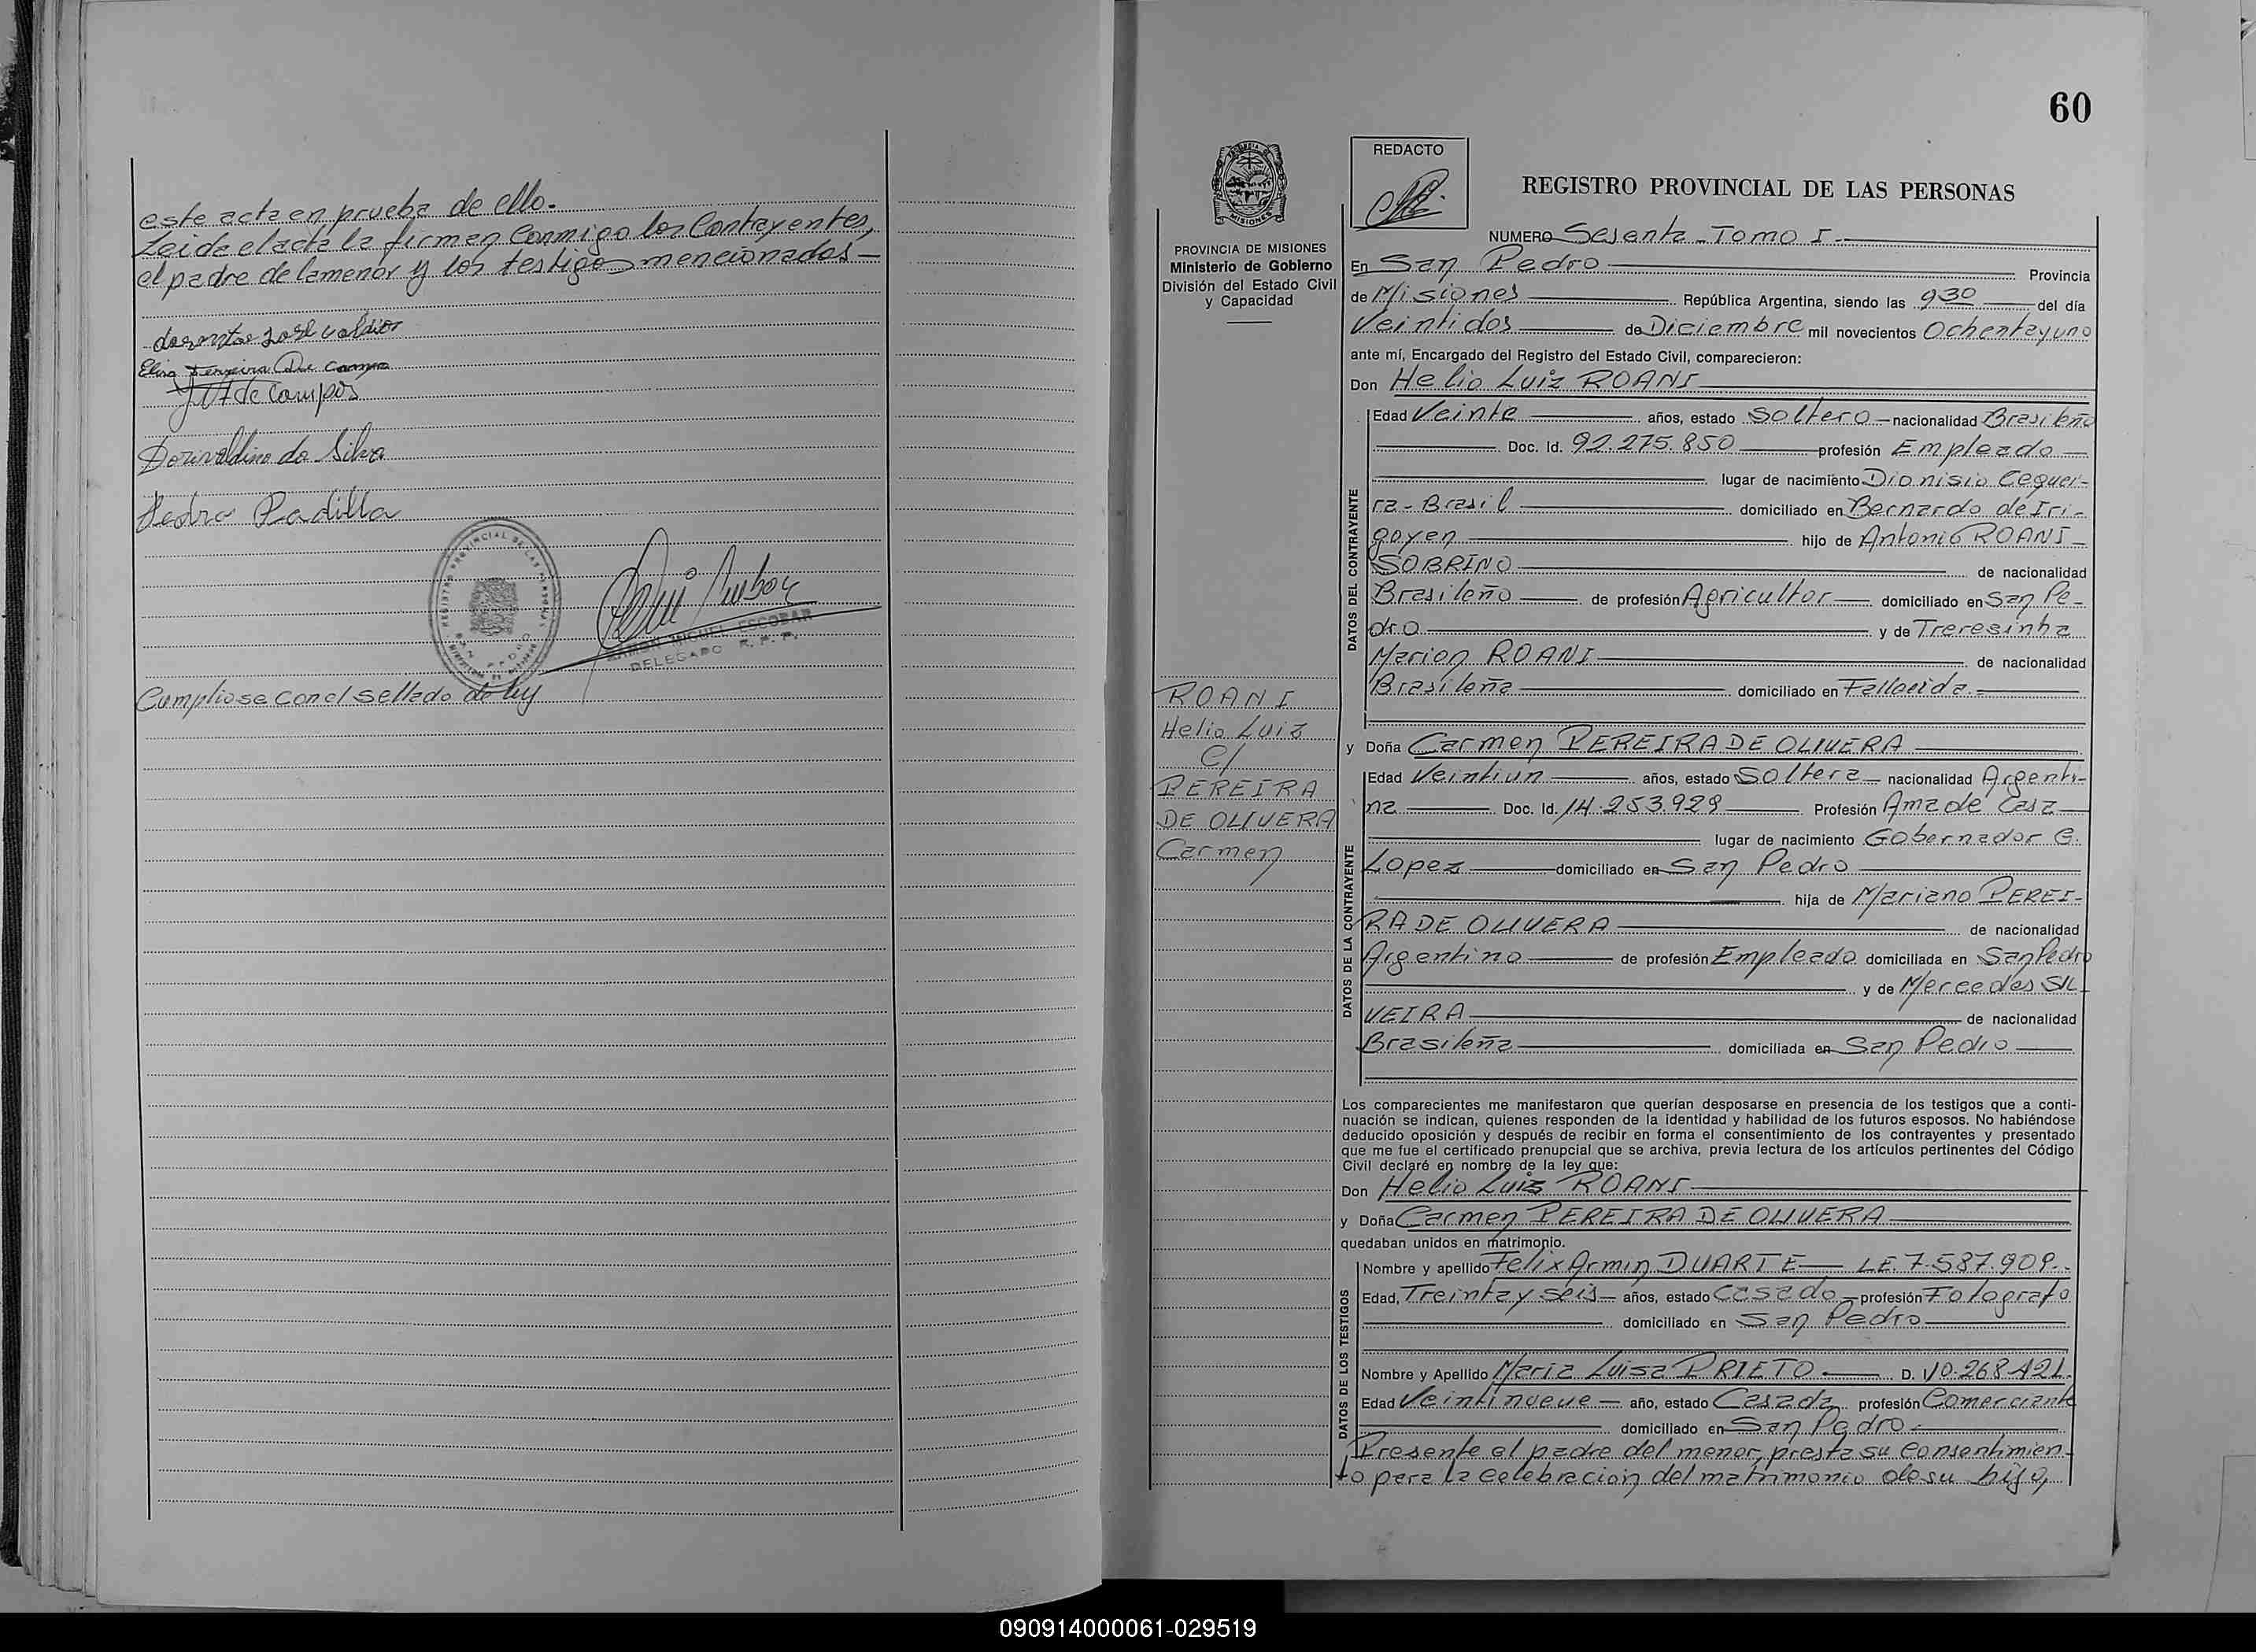 este acta en prueba de ello.-
Leida el acta la firman conmigo los Contrayentes,
el padre de la menor y los testigos mencionados -
Elisa Ferreira De Campo
de campos
Dorivaldino da Silva
Pedro Padilla
REGISTRO PROVINCIAL DE LAS PERSONAS
SAN PEDRO
RAMON MIGUEL ESCOBAR
DELEGADO R. P. P.
Cumpliose con el sellado de ley
60
REDACTO
PROVINCIA DE MISIONES
Ministerio de Gobierno
División del Estado Civil
y Capacidad
ROANI
Helio Luiz
c/
PEREIRA
DE OLIVERA
Carmen
REGISTRO PROVINCIAL DE LAS PERSONAS
NUMERO Sesenta - Tomo I -
En San Pedro Provincia
de Misiones República Argentina, siendo las 930 del día
Veintidos de Diciembre mil novecientos Ochenta y uno
ante mí, Encargado del Registro del Estado Civil, comparecieron:
Don Helio Luiz ROANI
DATOS DEL CONTRAYENTE
Edad Veinte años, estado Soltero nacionalidad Brasileño
Doc. Id. 92.275.850 profesión Empleado
lugar de nacimiento Dionisio Cequei-
ra - Brasil domiciliado en Bernardo de Iri-
goyen hijo de Antonio ROANI
SOBRINO de nacionalidad
Brasileño de profesión Agricultor domiciliado en San Pe-
dro y de Treresinha
Marion ROANI de nacionalidad
Brasileña domiciliado en Fallecida.-
y Doña Carmen PEREIRA DE OLIVERA
DATOS DE LA CONTRAYENTE
Edad Veintiun años, estado Soltera nacionalidad Argenti-
na Doc. Id. 14.253.929 Profesión Ama de Casa
lugar de nacimiento Gobernador G.
Lopez domiciliado en San Pedro
hija de Mariano PEREI-
RA DE OLIVERA de nacionalidad
Argentino de profesión Empleado domiciliada en San Pedro
y de Mercedes SIL
VEIRA de nacionalidad
Brasileña domiciliada en San Pedro
Los comparecientes me manifestaron que querían desposarse en presencia de los testigos que a conti-
nuación se indican, quienes responden de la identidad y habilidad de los futuros esposos. No habiéndose
deducido oposición y después de recibir en forma el consentimiento de los contrayentes y presentado
que me fue el certificado prenupcial que se archiva, previa lectura de los artículos pertinentes del Código
Civil declaré en nombre de la ley que:
Don Helio Luiz ROANI
y Doña Carmen PEREIRA DE OLIVERA
quedaban unidos en matrimonio.
DATOS DE LOS TESTIGOS
Nombre y apellido Felix Armin DUARTE LE. 7.587.909.-
Edad, Treinta y seis años, estado Casado profesión Fotografo
domiciliado en San Pedro
Nombre y Apellido Maria Luisa PRIETO D. 10.268.421.
Edad Veintinueve año, estado Casada profesión Comerciante
domiciliado en San Pedro
Presente el padre del menor, presta su consentimien-
to para la celebracion del matrimonio de su hijo,
090914000061-029519